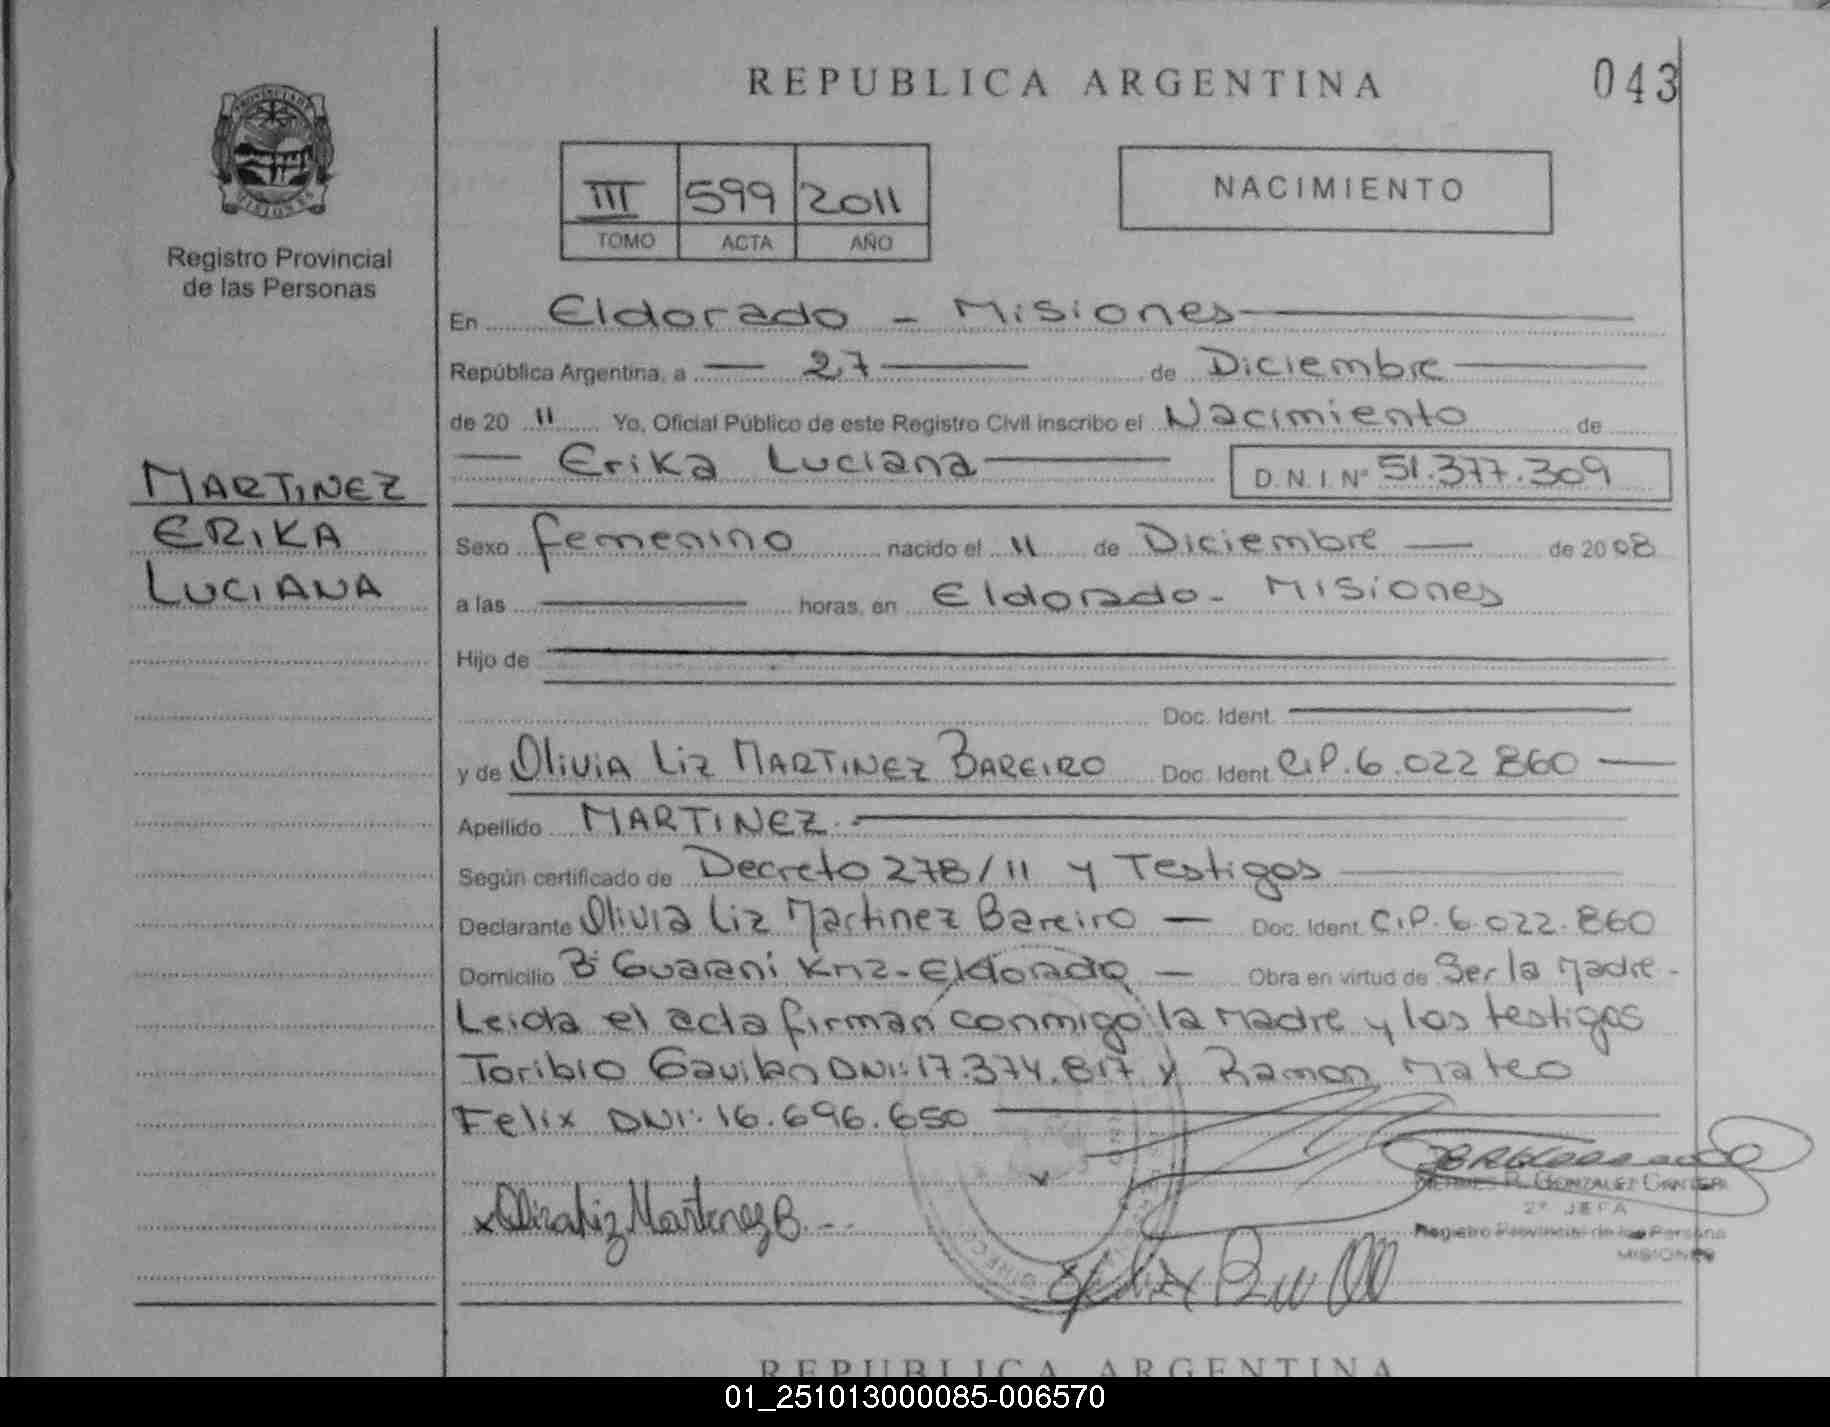 REPUBLICA ARGENTINA
043
PROVINCIA DE
MISIONES
Registro Provincial
de las Personas
III 599 2011
TOMO ACTA AÑO
NACIMIENTO
En Eldorado - Misiones
República Argentina, a 27 de Diciembre
de 20 11 Yo, Oficial Público de este Registro Civil inscribo el Nacimiento de
Erika Luciana D.N.I. Nº 51.377.309
MARTINEZ
ERIKA
LUCIANA
Sexo femenino nacido el 11 de Diciembre de 2008
a las horas, en Eldorado - Misiones
Hijo de
Doc. Ident.
y de Olivia Liz MARTINEZ BAREIRO Doc. Ident C.I.P. 6.022 860
Apellido MARTINEZ.
Según certificado de Decreto 278/11 y Testigos
Declarante Olivia Liz Martinez Bareiro Doc. Ident C.I.P. 6.022.860
Domicilio Bº Guarani Km2 - Eldorado Obra en virtud de Ser la Madre -
Leida el acta firman conmigo la madre y los testigos
Toribio Gavilan DNI: 17.374.817 y Ramon Mateo
Felix DNI: 16.696.650
x Olivia Liz Martinez B.
R. GONZALEZ
2º JEFA
Registro Provincial de las Personas
MISIONES
REPUBLICA ARGENTINA
01_251013000085-006570